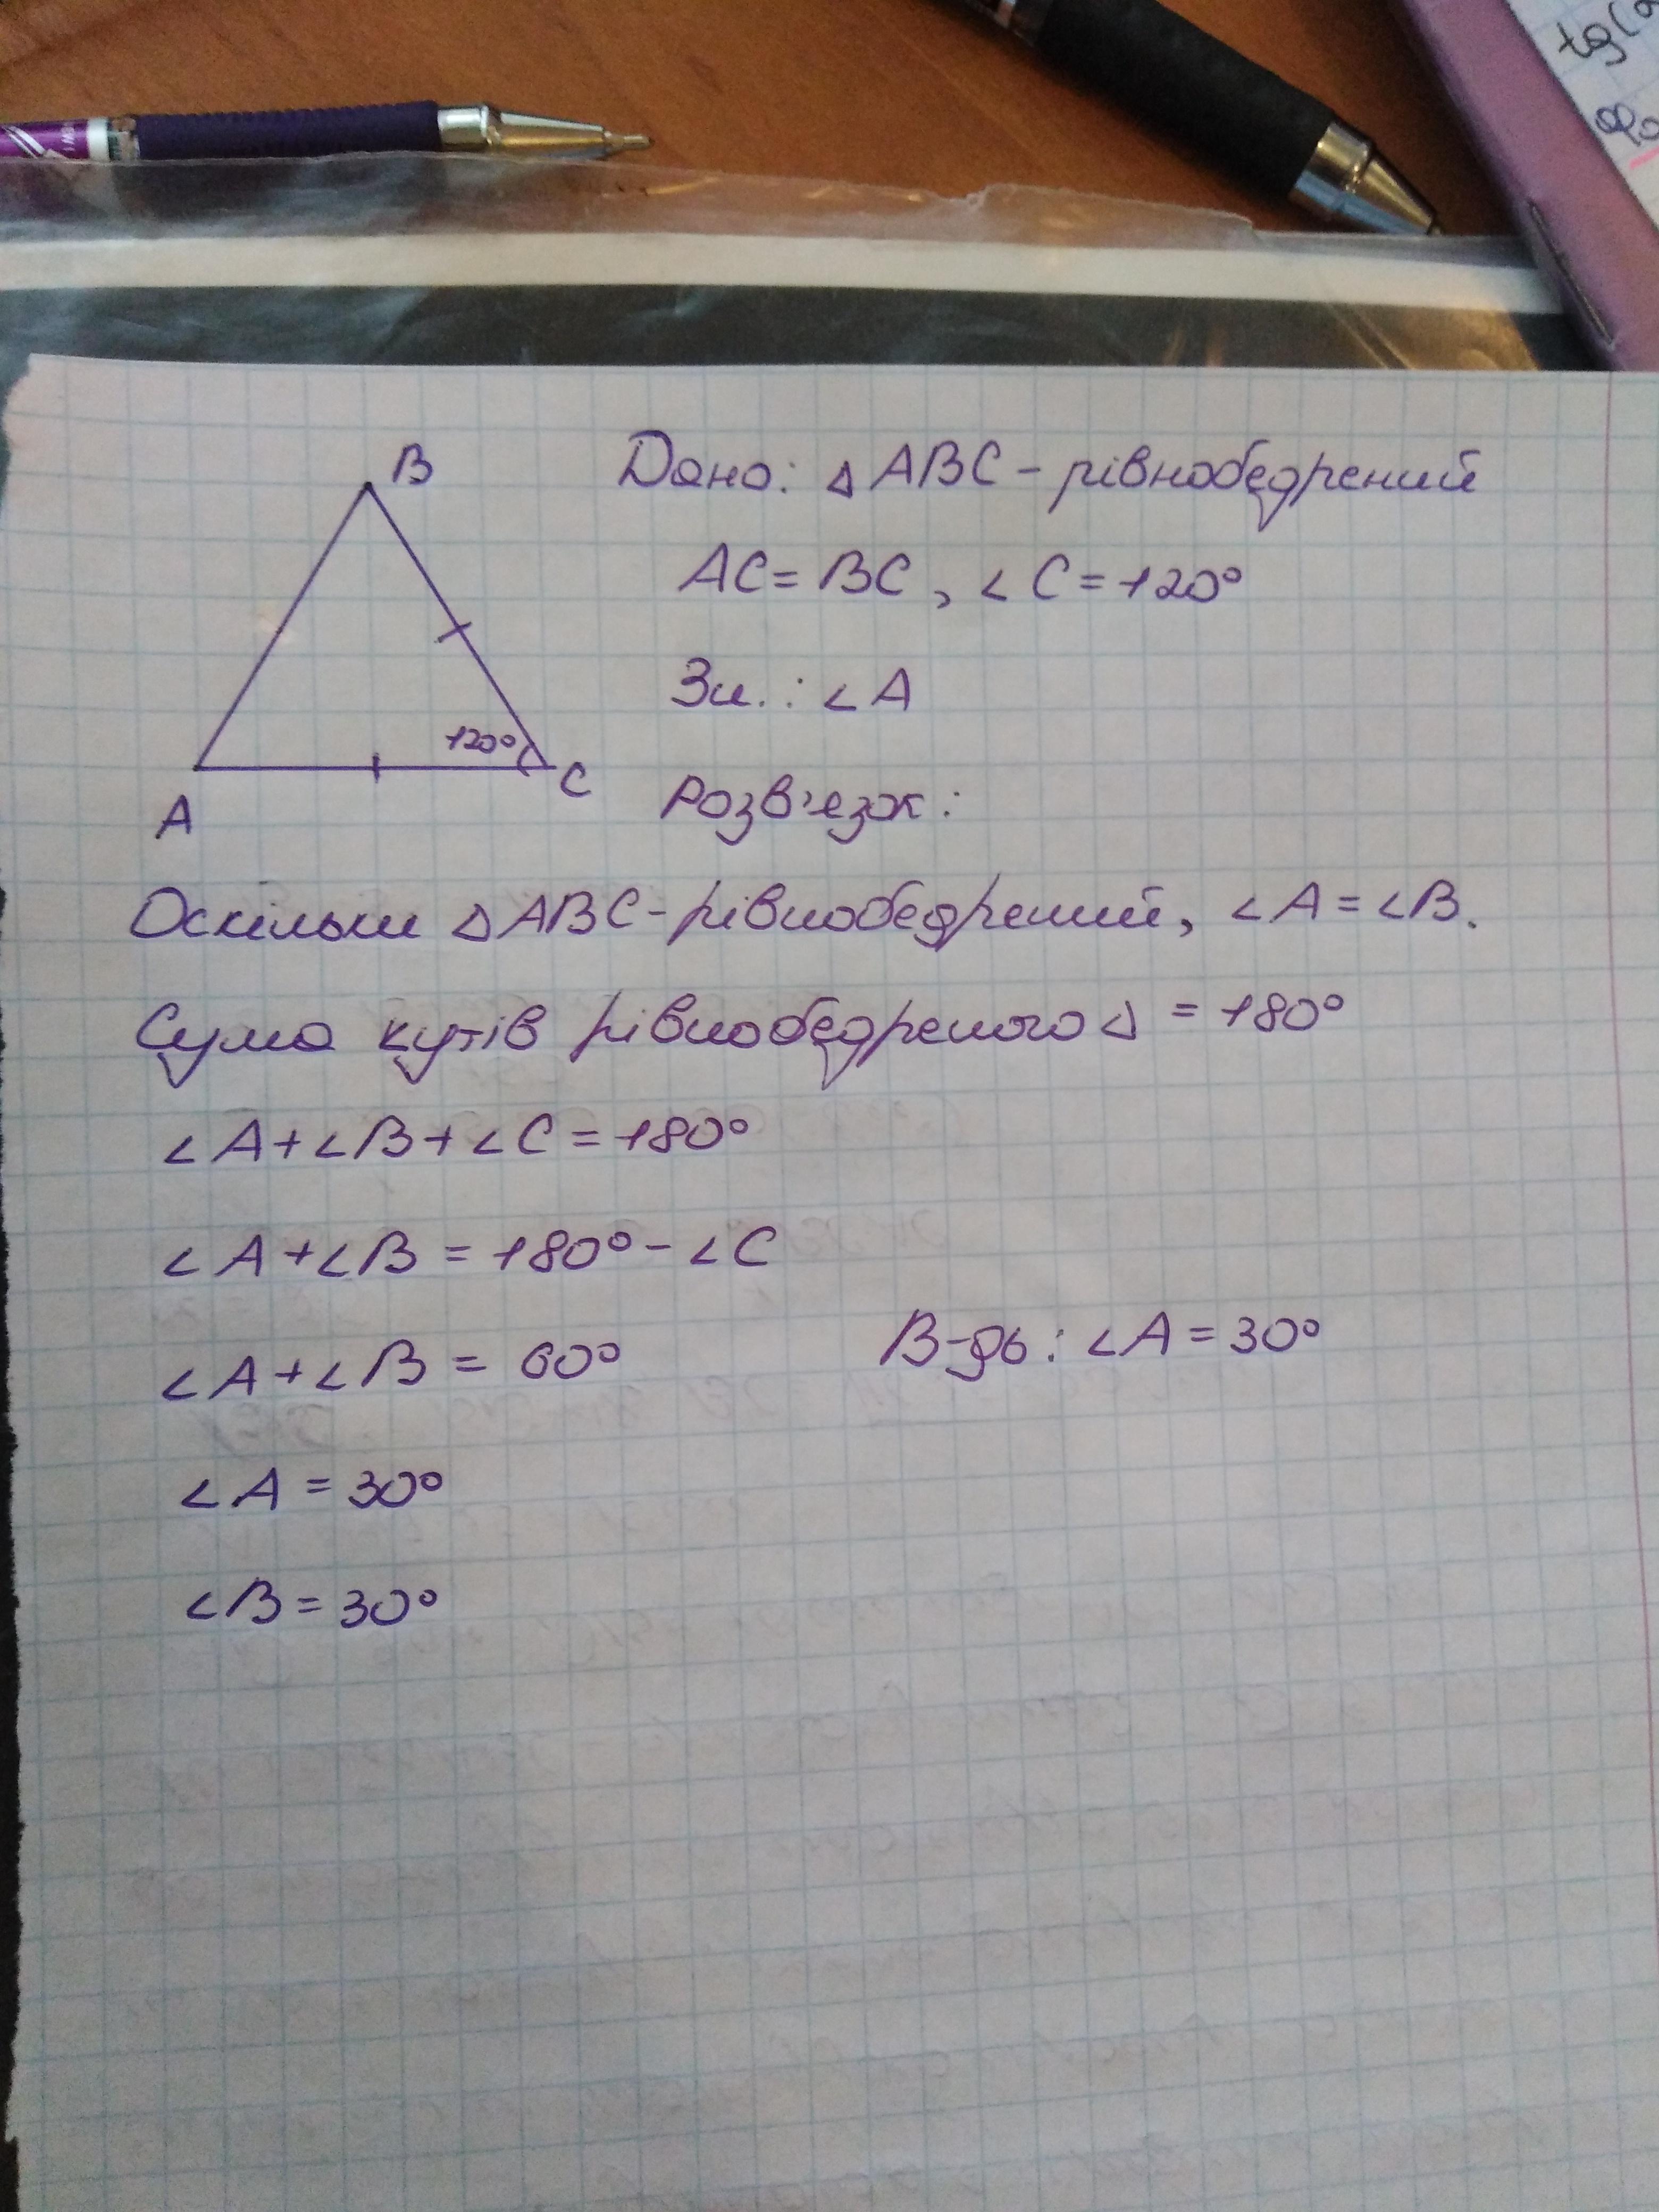 tg(
B
Дано: △ABC - рівнобедрений
AC = BC, ∠C = 120°
Зн.: ∠A
120°
C
A
Розв'язок:
Оскільки △ABC - рівнобедрений, ∠A = ∠B.
Сума кутів рівнобедреного △ = 180°
∠A + ∠B + ∠C = 180°
∠A + ∠B = 180° - ∠C
∠A + ∠B = 60°
В-дь: ∠A = 30°
∠A = 30°
∠B = 30°